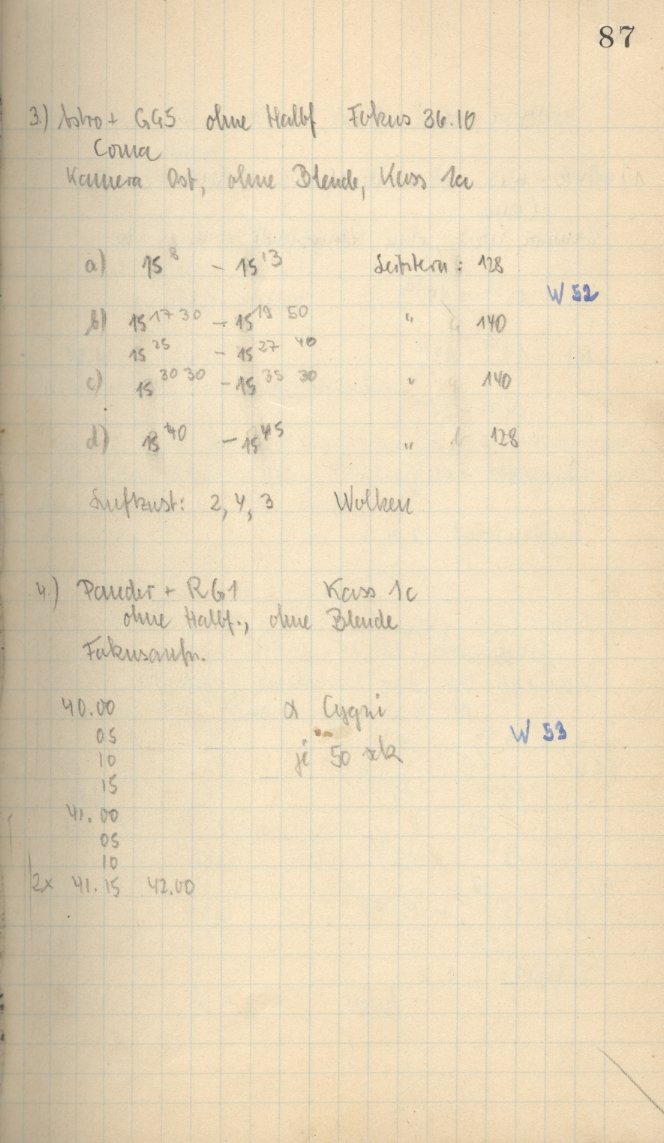 87
3.) Astro + GG5 ohne Halbf Fokus 36.10
Coma
Kamera Ost, ohne Blende, Kass 1a
a) 15 8 – 15 13 Leitstern: 128
W 52
b) 15 17 30 – 15 19 50 " 140
15 25 – 15 27 40
c) 15 30 30 – 15 35 30 " 140
d) 15 40 – 15 45 " 128
Luftzust: 2, 4, 3 Wolken
4.) Pander + RG1 Kass 1c
ohne Halbf., ohne Blende
Fokusaufn.
40.00 α Cygni
05 W 53
10 je 50 sek
15
41.00
05
10
2x 41.15 42.00